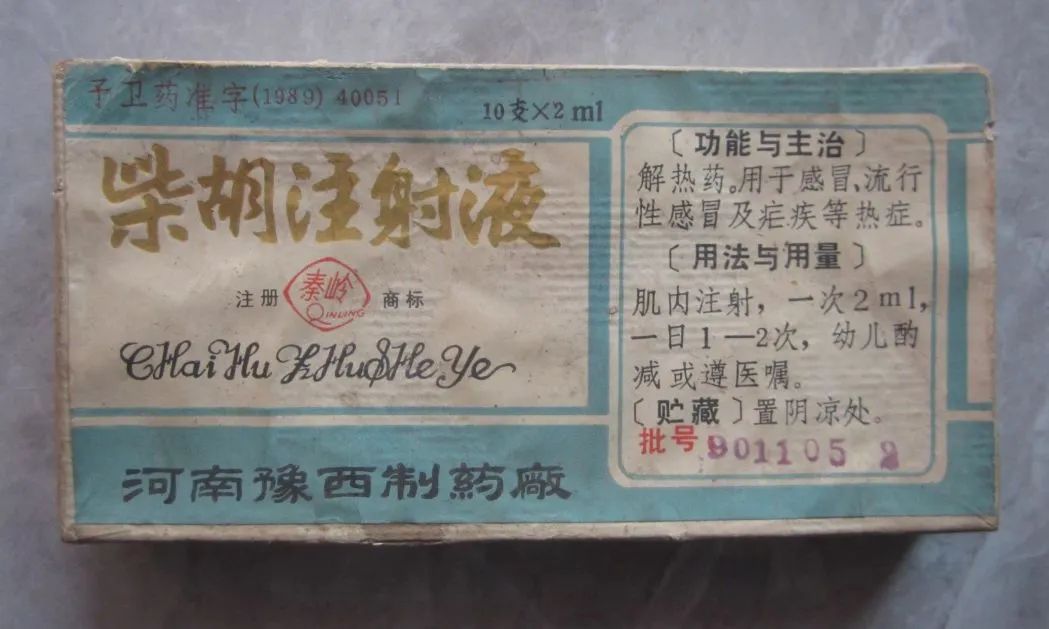 予卫药准字(1989) 40051
10支×2 ml
柴胡注射液
注册 秦岭 商标
QINLING
CHai Hu ZHuSHe Ye
河南豫西制药廠
〔功能与主治〕
解热药。用于感冒、流行
性感冒及疟疾等热症。
〔用法与用量〕
肌内注射，一次2ml，
一日1—2次，幼儿酌
减或遵医嘱。
〔贮藏〕置阴凉处。
批号 901105 2